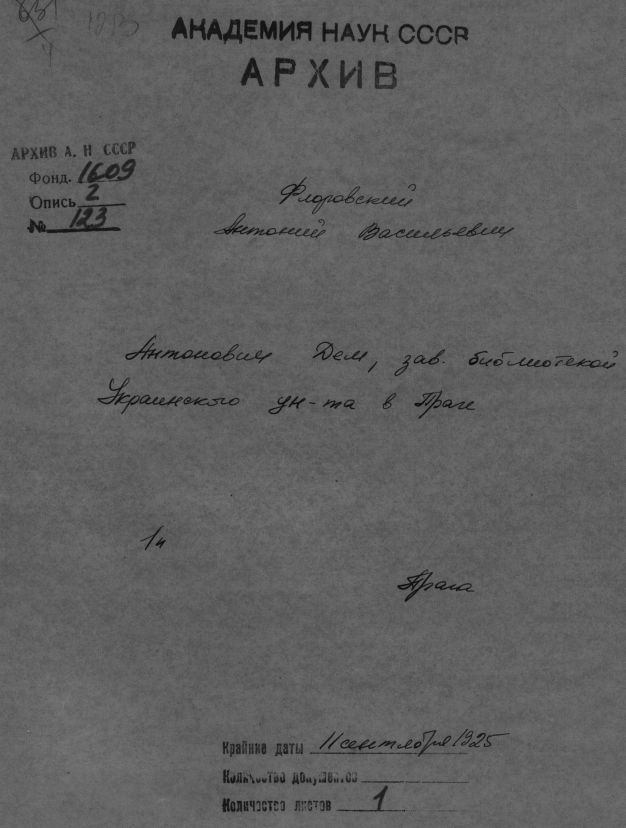 1213
АКАДЕМИЯ НАУК СССР
АРХИВ
АРХИВ А. Н СССР
Фонд. 1609
Опись 2
№ 123
Флоровский
Антоний Васильевич
Антонович Дем, зав. библиотекой
Украинского ун-та в Праге
1п
Прага
Крайние даты 11 сентября 1925
Количество документов
Количество листов 1